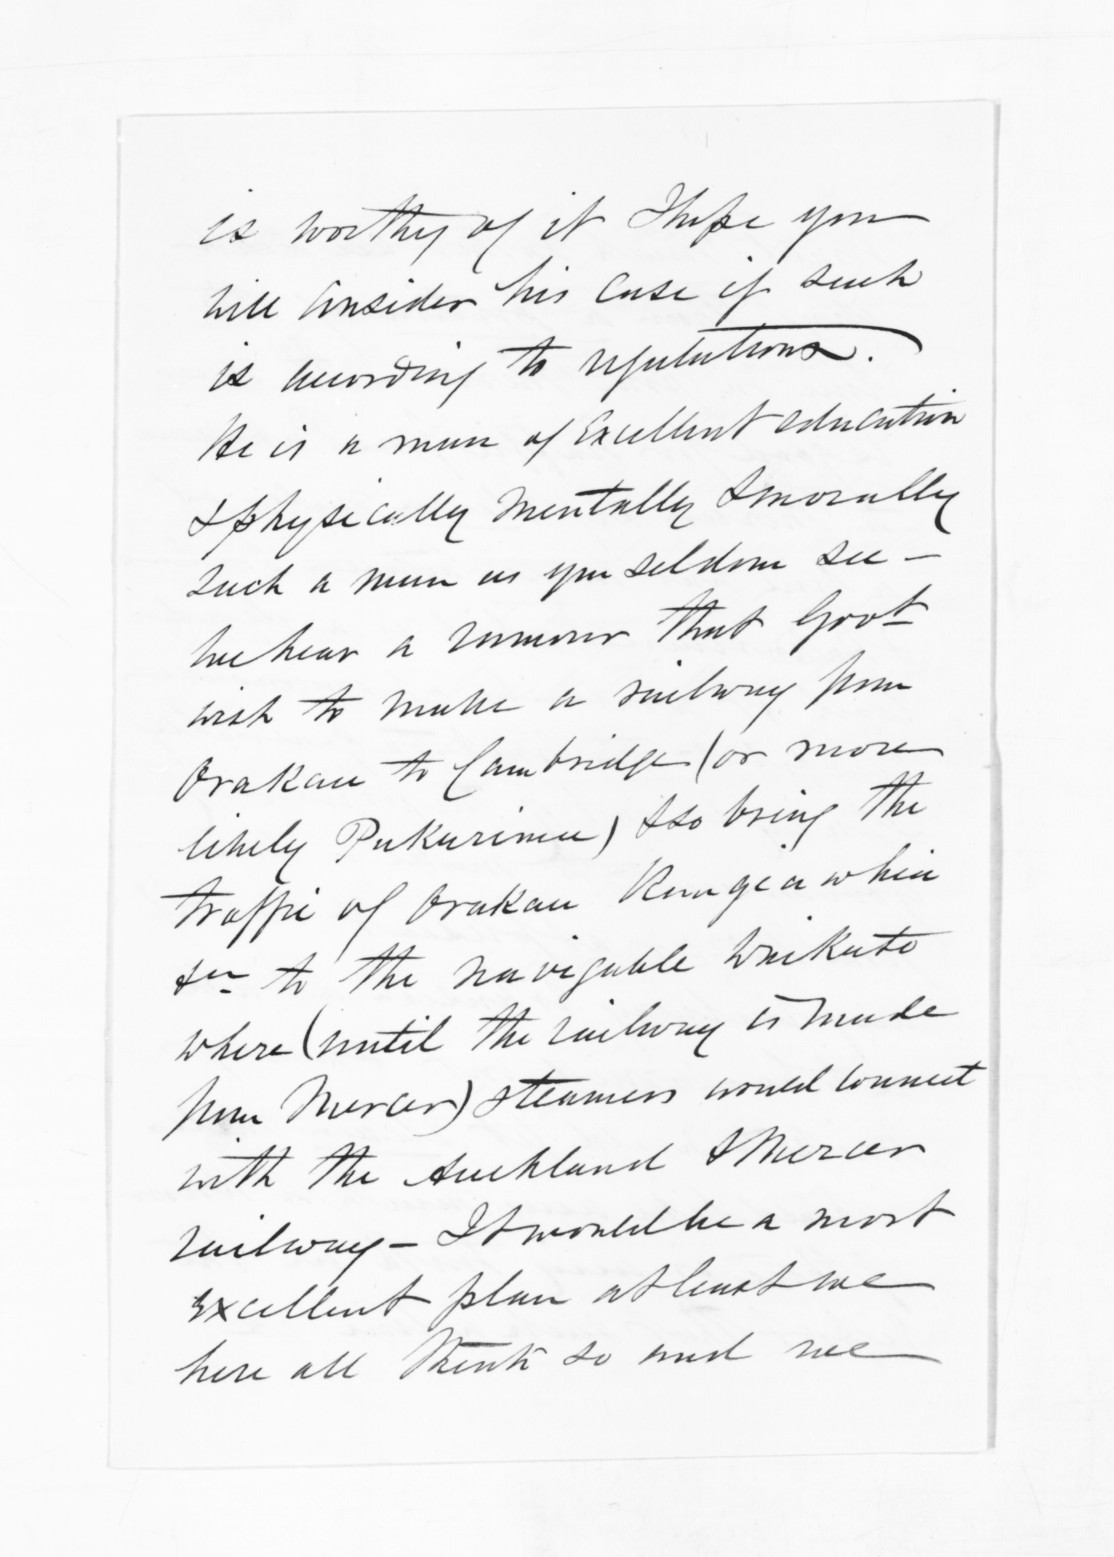 is worthy of it I hope you
will consider his case if such
is according to regulations.
He is a man of Excellent education
& physically mentally & morally
such a man as you seldom see —
we hear a rumour that Govt
wish to make a railway from
Orakau to Cambridge (or more
likely Pukerimu) & so bring the
traffic of Orakau Rangiawhia
&c to the navigable Waikato
where (until the railway is made
from Mercer) steamers would connect
with the Auckland & Mercer
railway — It would be a most
Excellent plan at least we
here all think so and we